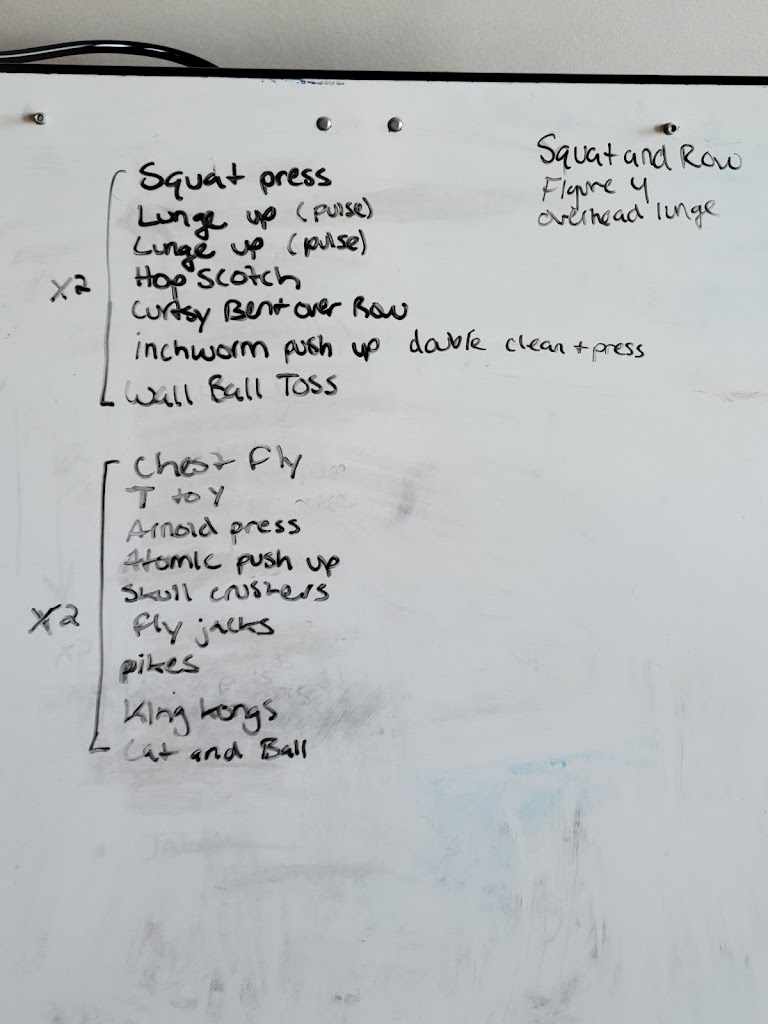 Squat press
Lunge up (pulse)
Lunge up (pulse)
Hop Scotch
Curtsy Bent over Row
inchworm push up double clean + press
Wall Ball Toss
x2
Chest Fly
T to Y
Arnold press
Atomic push up
Skull crushers
fly jacks
pikes
King Kongs
Cat and Ball
x2
Squat and Row
Figure 4
overhead lunge